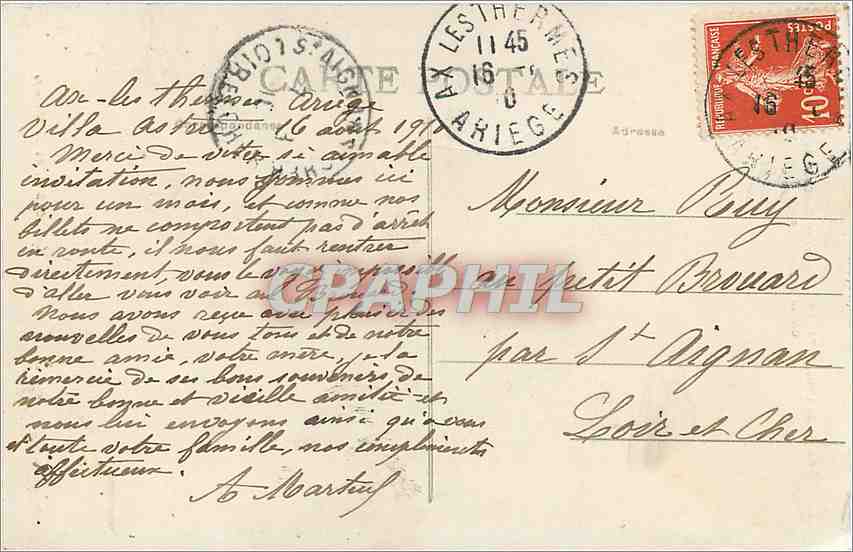 CARTE POSTALE
Correspondance
Adresse
AX LES THERMES
11 45
16
10
ARIEGE
ST AIGNAN
LOIR-ET-CHER
RÉPUBLIQUE FRANÇAISE
POSTES
10
Ax-les thermes Ariège
Villa 16 août 1910
Merci de votre si aimable
invitation, nous sommes ici
pour un mois, et comme nos
billets ne comportent pas d'arrêt
en route, il nous faut rentrer
directement, vous le voyez impossible
d'aller vous voir au
Nous avons reçu avec plaisir des
nouvelles de vous tous et de notre
bonne amie, votre mère, je la
remercie de ses bons souvenirs de
notre bonne et vieille amitié et
nous lui envoyons ainsi qu'à vous
et toute votre famille, nos compliments
affectueux.
A Marteul
Monsieur Ruy
au petit Brouard
par St Aignan
Loir et Cher
CPAPHIL